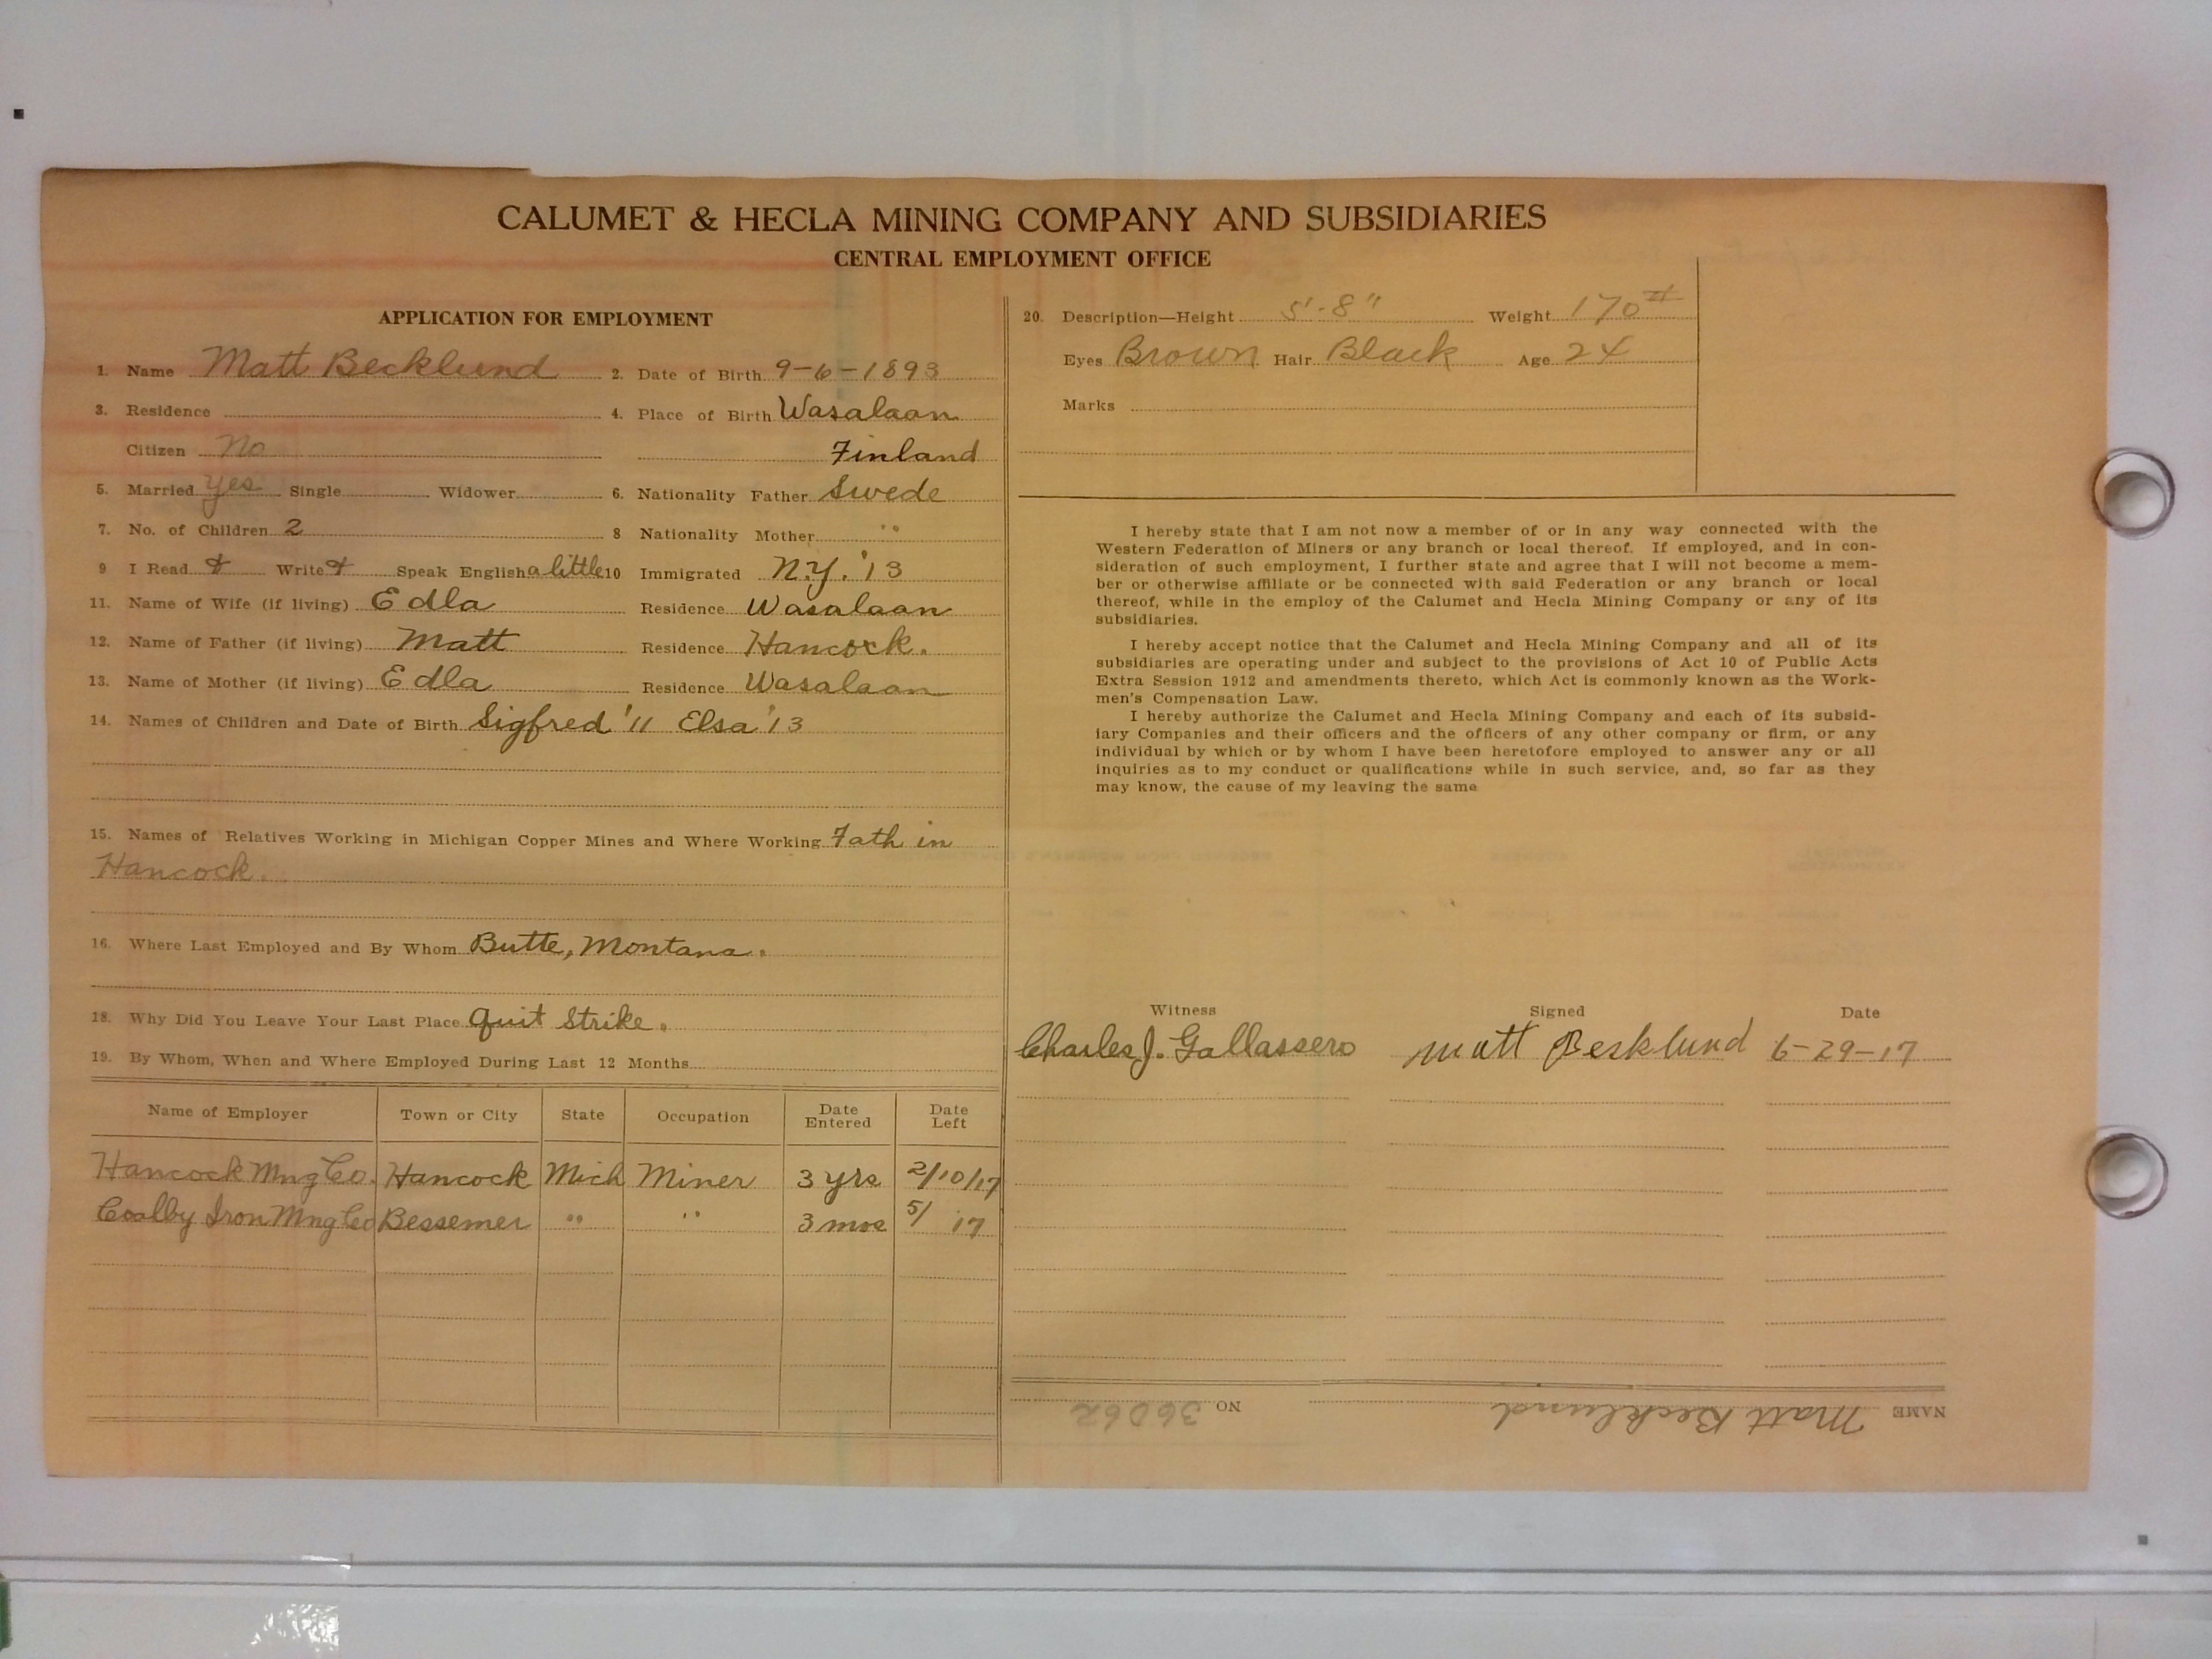 CALUMET & HECLA MINING COMPANY AND SUBSIDIARIES
CENTRAL EMPLOYMENT OFFICE
APPLICATION FOR EMPLOYMENT
1. Name Matt Becklund 2. Date of Birth 9-6-1893
3. Residence 4. Place of Birth Wasalaan
Citizen No Finland
5. Married Yes Single Widower 6. Nationality Father Swede
7. No. of Children 2 8 Nationality Mother "
9 I Read & Write & Speak English a little 10 Immigrated N.Y. '13
11. Name of Wife (if living) Edla Residence Wasalaan
12. Name of Father (if living) Matt Residence Hancock.
13. Name of Mother (if living) Edla Residence Wasalaan
14. Names of Children and Date of Birth Sigfred '11 Elsa '13
15. Names of Relatives Working in Michigan Copper Mines and Where Working Fath in
Hancock.
16. Where Last Employed and By Whom Butte, Montana.
18. Why Did You Leave Your Last Place Quit Strike.
19. By Whom, When and Where Employed During Last 12 Months
Name of Employer Town or City State Occupation Date Entered Date Left
Hancock Mng Co. Hancock Mich Miner 3 yrs 2/10/17
Coalby Iron Mng Co Bessemer " " 3 mos 5/ 17
20. Description—Height 5'-8" Weight 170#
Eyes Brown Hair Black Age 24
Marks
I hereby state that I am not now a member of or in any way connected with the
Western Federation of Miners or any branch or local thereof. If employed, and in con-
sideration of such employment, I further state and agree that I will not become a mem-
ber or otherwise affiliate or be connected with said Federation or any branch or local
thereof, while in the employ of the Calumet and Hecla Mining Company or any of its
subsidiaries.
I hereby accept notice that the Calumet and Hecla Mining Company and all of its
subsidiaries are operating under and subject to the provisions of Act 10 of Public Acts
Extra Session 1912 and amendments thereto, which Act is commonly known as the Work-
men's Compensation Law.
I hereby authorize the Calumet and Hecla Mining Company and each of its subsid-
iary Companies and their officers and the officers of any other company or firm, or any
individual by which or by whom I have been heretofore employed to answer any or all
inquiries as to my conduct or qualifications while in such service, and, so far as they
may know, the cause of my leaving the same
Witness Signed Date
Charles J. Gallassero Matt Becklund 6-29-17
NAME Matt Becklund NO 36062